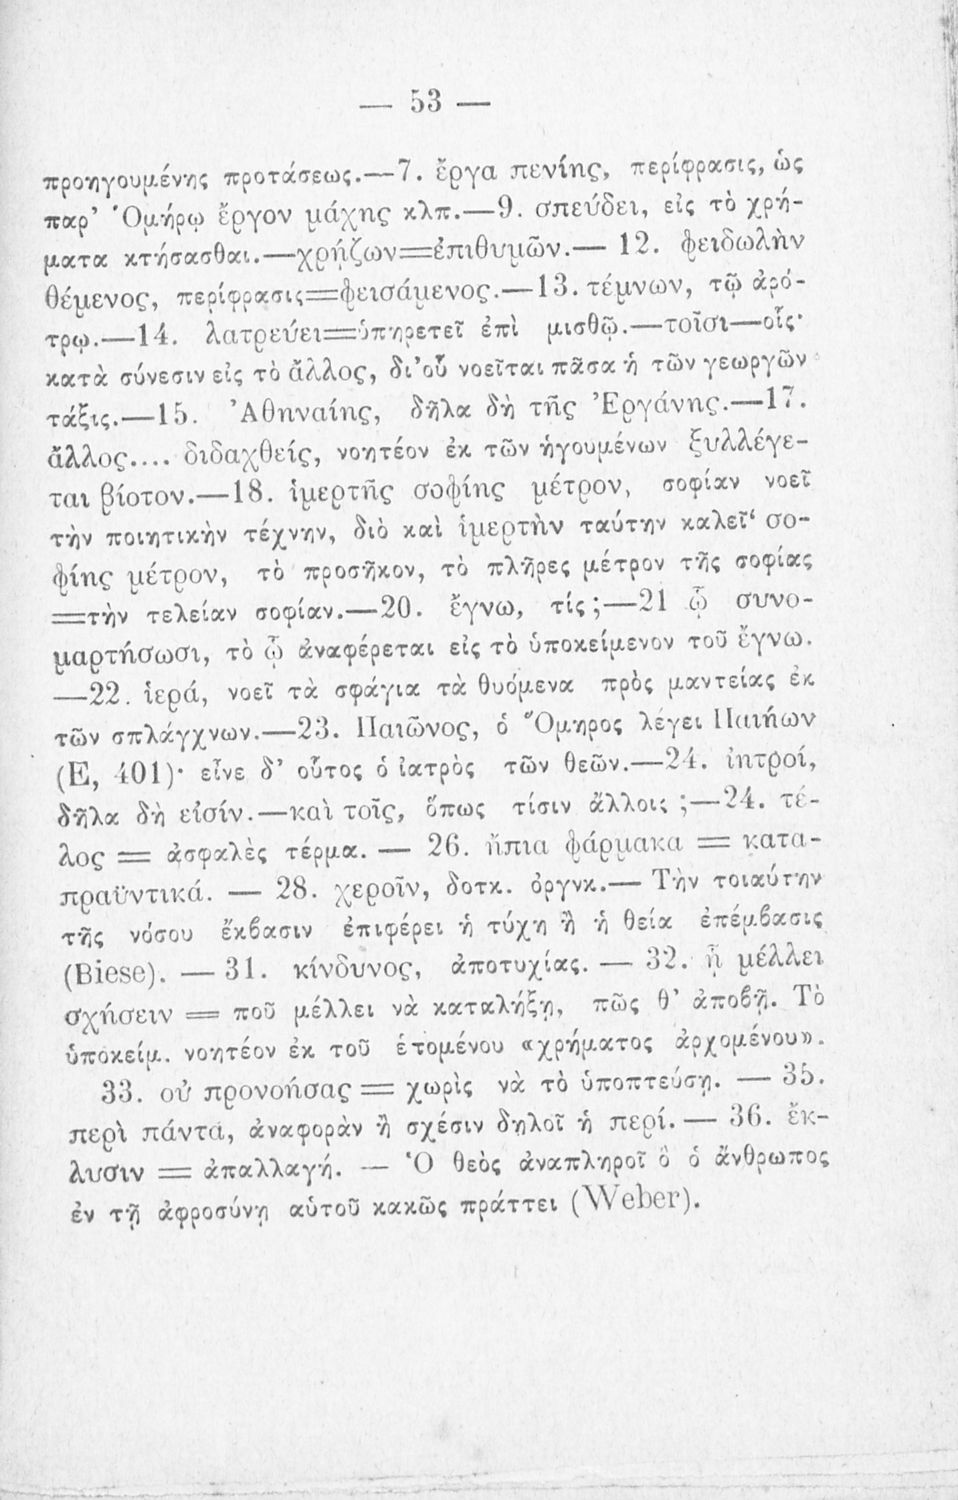 — 53 —
προηγουμένης προτάσεως.—7. ἔργα πενίης, περίφρασις, ὡς
παρ’ Ὁμήρῳ ἔργον μάχης κλπ.—9. σπεύδει, εἰς τὸ χρή-
ματα κτήσασθαι.—χρήζων=ἐπιθυμῶν.— 12. φειδωλὴν
θέμενος, περίφρασις=φεισάμενος.—13. τέμνων, τῷ ἀρό-
τρῳ.—14. λατρεύει=ὑπηρετεῖ ἐπὶ μισθῷ.—τοῖσι—οἷς·
κατὰ σύνεσιν εἰς τὸ ἄλλος, δι’ οὗ νοεῖται πᾶσα ἡ τῶν γεωργῶν
τάξις.—15. Ἀθηναίης, δῆλα δὴ τῆς Ἐργάνης.—17.
ἄλλος.... διδαχθείς, νοητέον ἐκ τῶν ἡγουμένων ξυλλέγε-
ται βίοτον.—18. ἱμερτῆς σοφίης μέτρον, σοφίαν νοεῖ
τὴν ποιητικὴν τέχνην, διὸ καὶ ἱμερτὴν ταύτην καλεῖ· σο-
φίης μέτρον, τὸ προσῆκον, τὸ πλῆρες μέτρον τῆς σοφίας
=τὴν τελείαν σοφίαν.—20. ἔγνω, τίς;—21 ᾧ συνο-
μαρτήσωσι, τὸ ᾧ ἀναφέρεται εἰς τὸ ὑποκείμενον τοῦ ἔγνω.
—22. ἱερά, νοεῖ τὰ σφάγια τὰ θυόμενα πρὸς μαντείας ἐκ
τῶν σπλάγχνων.—23. Παιῶνος, ὁ Ὅμηρος λέγει Παιήων
(Ε, 401)· εἶνε δ’ οὗτος ὁ ἰατρὸς τῶν θεῶν.—24. ἰητροί,
δῆλα δὴ εἰσίν.—καὶ τοῖς, ὅπως τίσιν ἄλλοις ;—24. τέ-
λος = ἀσφαλὲς τέρμα. — 26. ἤπια φάρμακα = κατα-
πραϋντικά. — 28. χεροῖν, δοτκ. ὀργνκ.— Τὴν τοιαύτην
τῆς νόσου ἔκβασιν ἐπιφέρει ἡ τύχη ἢ ἡ θεία ἐπέμβασις
(Biese). — 31. κίνδυνος, ἀποτυχίας. — 32. ᾗ μέλλει
σχήσειν = ποῦ μέλλει νὰ καταλήξῃ, πῶς θ’ ἀποβῇ. Τὸ
ὑποκείμ. νοητέον ἐκ τοῦ ἑτομένου «χρήματος ἀρχομένου».
33. οὐ προνοήσας = χωρὶς νὰ τὸ ὑποπτεύσῃ. — 35.
περὶ πάντα, ἀναφορὰν ἢ σχέσιν δηλοῖ ἡ περί. — 36. ἔκ-
λυσιν = ἀπαλλαγή. — Ὁ θεὸς ἀναπληροῖ ὃ ὁ ἄνθρωπος
ἐν τῇ ἀφροσύνῃ αὑτοῦ κακῶς πράττει (Weber).